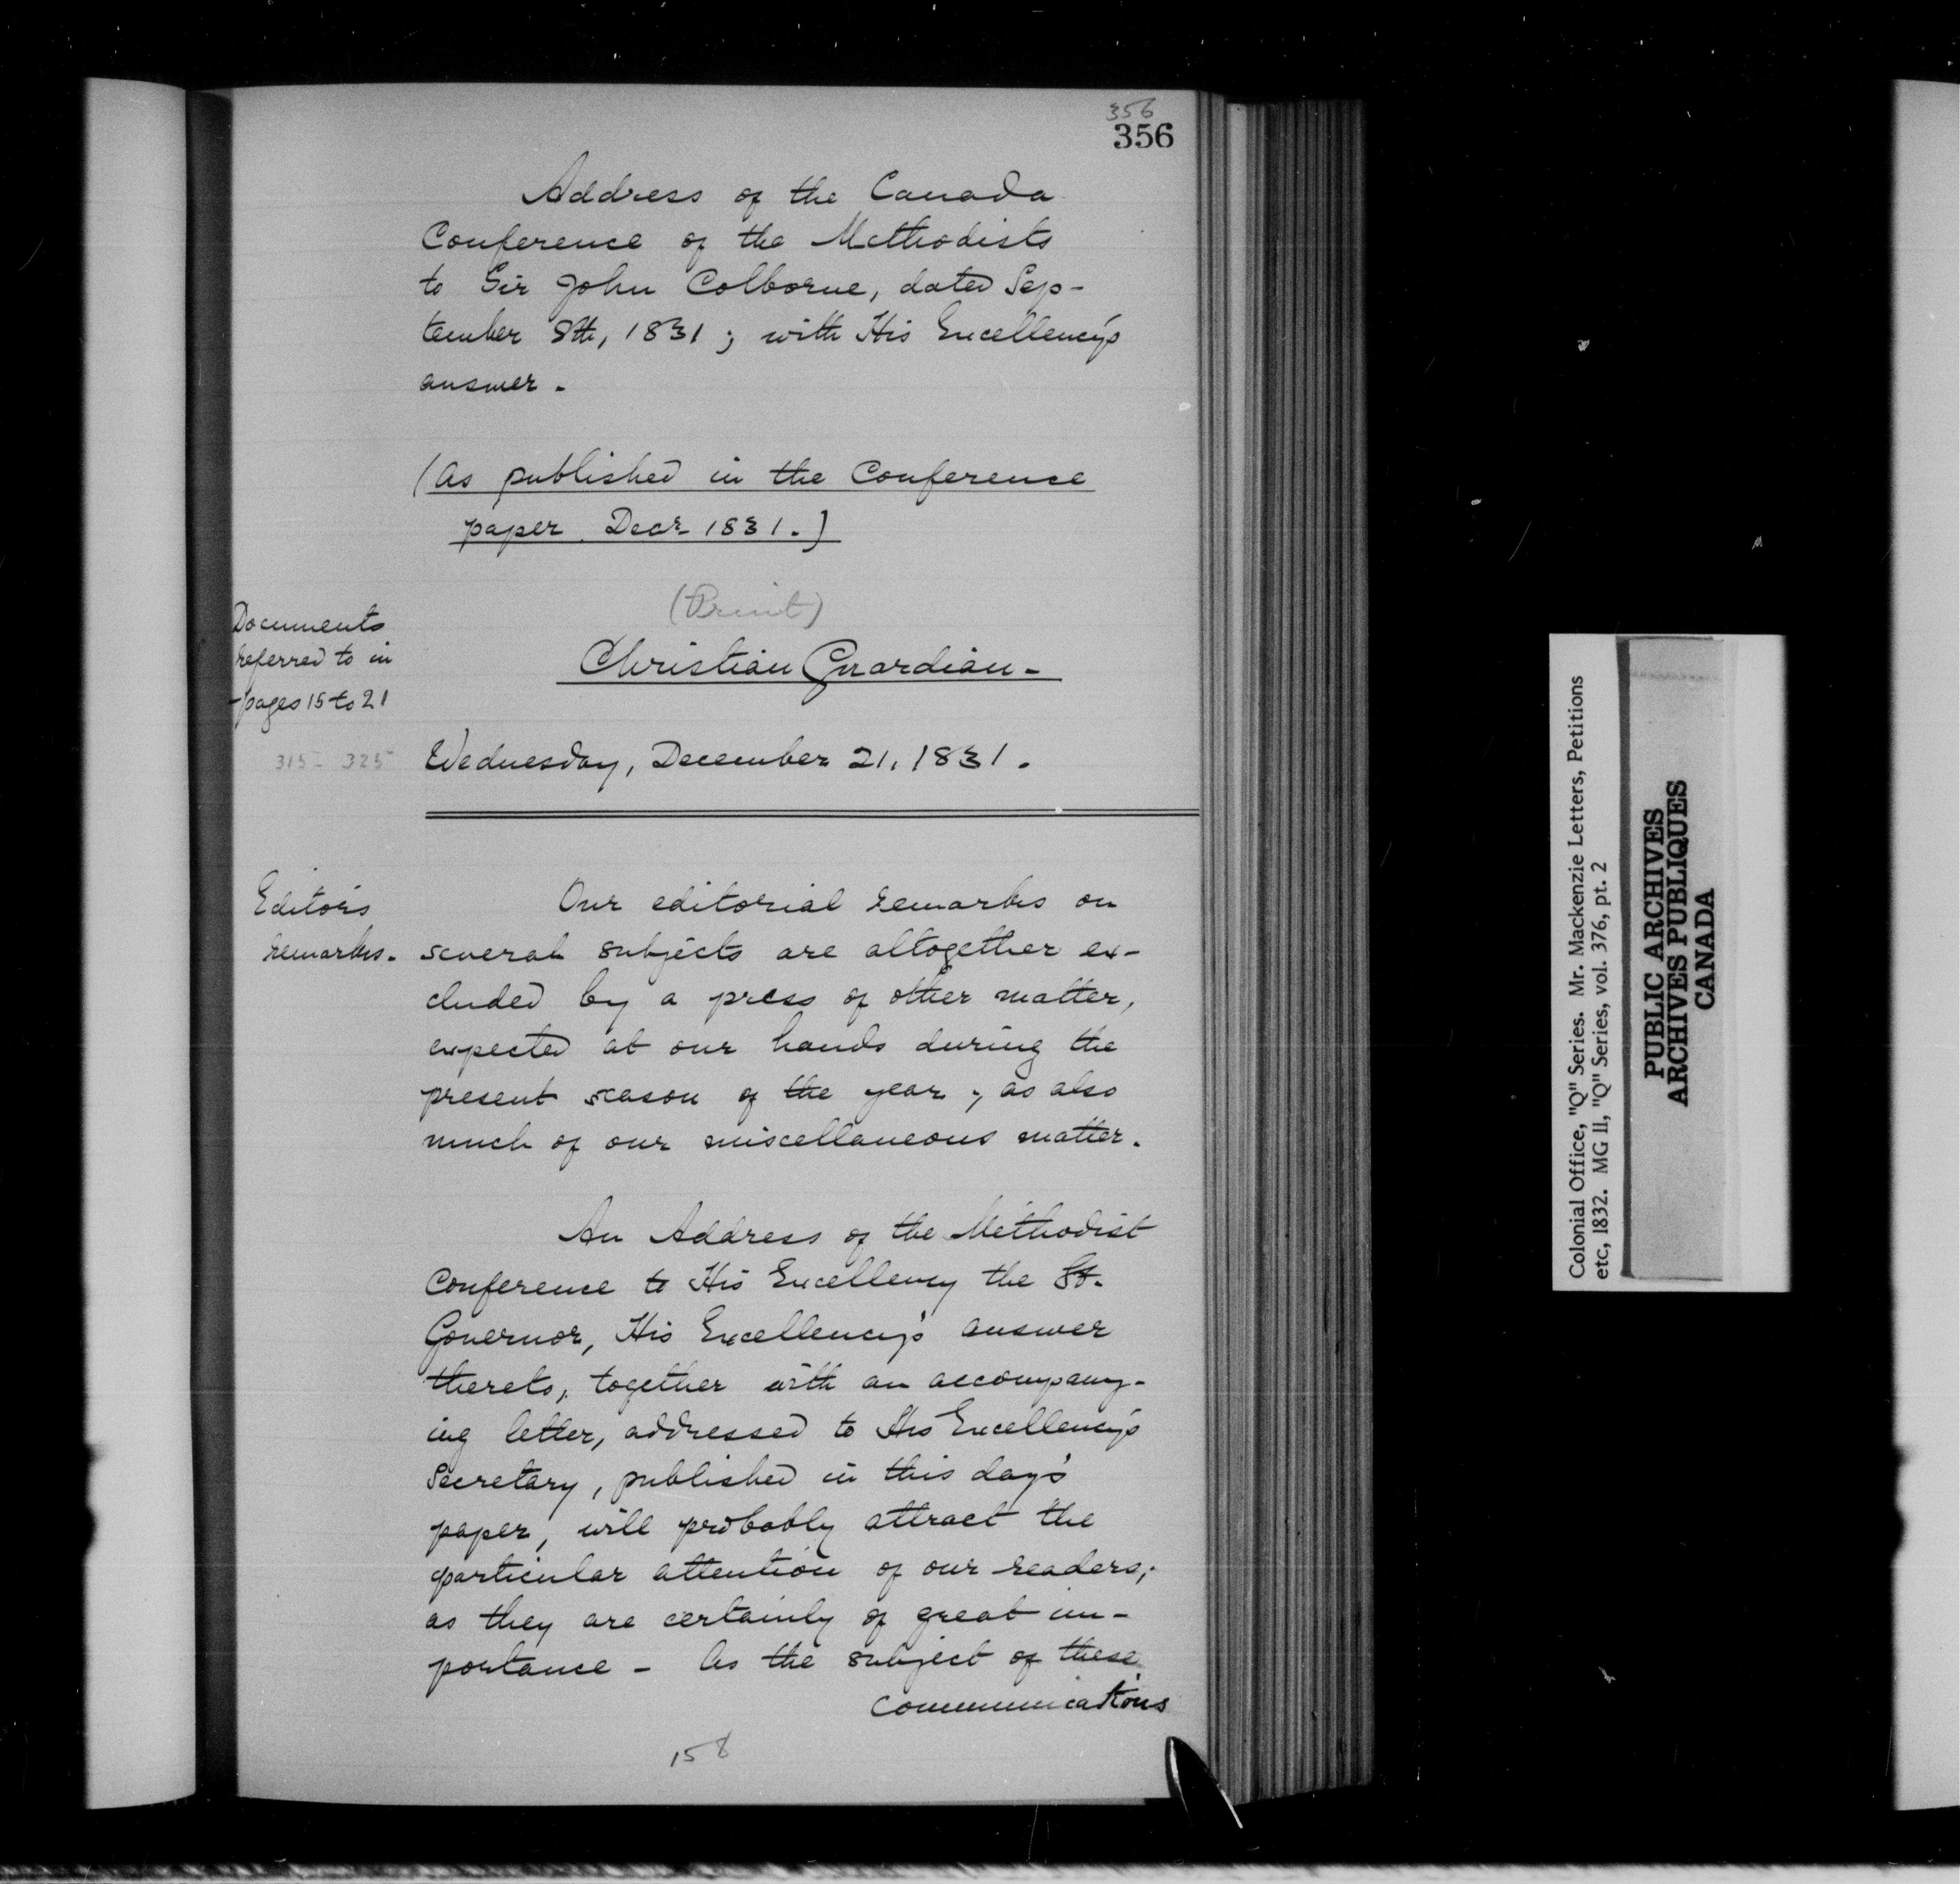 356
356
Address of the Canada
Conference of the Methodists
to Sir John Colborne, dated Sep-
tember 8th, 1831; with His Excellency's
answer.
(As published in the Conference
paper Decr 1831.)
(Print)
Documents
referred to in
pages 15 to 21
315 - 325
Christian Guardian-
Wednesday, December 21, 1831.
Editor's
remarks.
Our editorial remarks on
several subjects are altogether ex-
cluded by a press of other matter,
expected at our hands during the
present season of the year; as also
much of our miscellaneous matter.
An Address of the Methodist
Conference to His Excellency the Lt.
Governor, His Excellency's answer
thereto, together with an accompany-
ing letter, addressed to His Excellency's
Secretary, published in this day's
paper, will probably attract the
particular attention of our readers,
as they are certainly of great im-
portance - As the subject of these
communications
158
Colonial Office, "Q" Series. Mr. Mackenzie Letters, Petitions
etc, 1832. MG 11, "Q" Series, vol. 376, pt. 2
PUBLIC ARCHIVES
ARCHIVES PUBLIQUES
CANADA